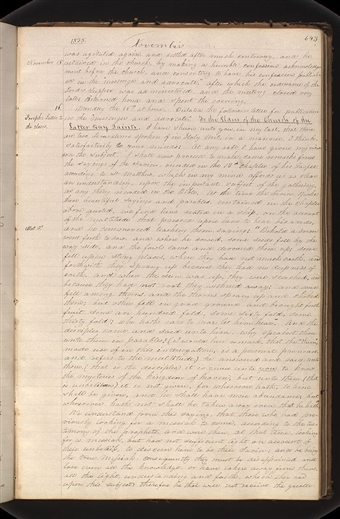 1835. November 643
was agitated again and settled after much controversy, and he
November 15 retained in the church by making a humble confession
before the church, and consenting to have his confession published
in the Messenger and Advocate; after which the ordinance of the
Lord's supper was administered, and the meeting closed very
late. Returned home and spent the evening.
16 Monday the 16th. At home. Dictated the following letter for publication
in the Messenger and Advocate. To the Elders of the Church of the
Latter Day Saints. I have shown unto you, in my last, that there
are two Jerusalems spoken of in holy writ, in a manner I think
satisfactorily to your minds. At any rate I have given my views
upon the subject. I shall now proceed to make some remarks from
the sayings of the Savior, recorded in the 13th chapter of his gospel
according to St. Matthew, which in my mind affords us as clear
an understanding, upon the important subject of the gathering,
as any thing recorded in the bible. At the time the Savior spoke
these beautiful sayings and parables, contained in the chapter
above quoted, we find him seated in a ship, on the account
of the multitude that pressed upon him to hear his words,
and he commenced teaching them saying: "Behold a sower
went forth to sow, and when he sowed, some seeds fell by the
way side, and the fowls came and devoured them up; some
fell upon stony places, where they had not much earth, and
forthwith they sprang up because they had no deepness of
earth, and when the sun was up, they were scorched, and
because they had not root they withered away; and some
fell among thorns and the thorns sprang up and choked
them; but other fell in good ground and brought forth
fruit, some an hundred fold, some sixty fold, some
thirty fold: who hath ears to hear let him hear. And the
disciples came and said unto him, why speakest thou
unto them in parables,
he answered and said unto
them, (that is the disciples) it is given unto you to know
the mysteries of the kingdom of heaven, but unto them (that
is unbelievers) it is not given, for whosoever hath, to him
shall be given, and he shall have more abundance; but
whosoever hath not, shall be taken away, even that he hath."
We understand from this saying, that those who had pre-
viously looking for a Messiah to come, according to the testi-
mony of the prophets, and were then, at that time, looking
for a Messiah, but had not sufficient light on account of
their unbelief, to discern him to be their Savior; and he being
the true Messiah, consequently they must be disappointed and
lose even all the knowledge, or have taken away from them,
all the light, understanding and faith, which they had
upon this subject; therefore he that will not receive the greater